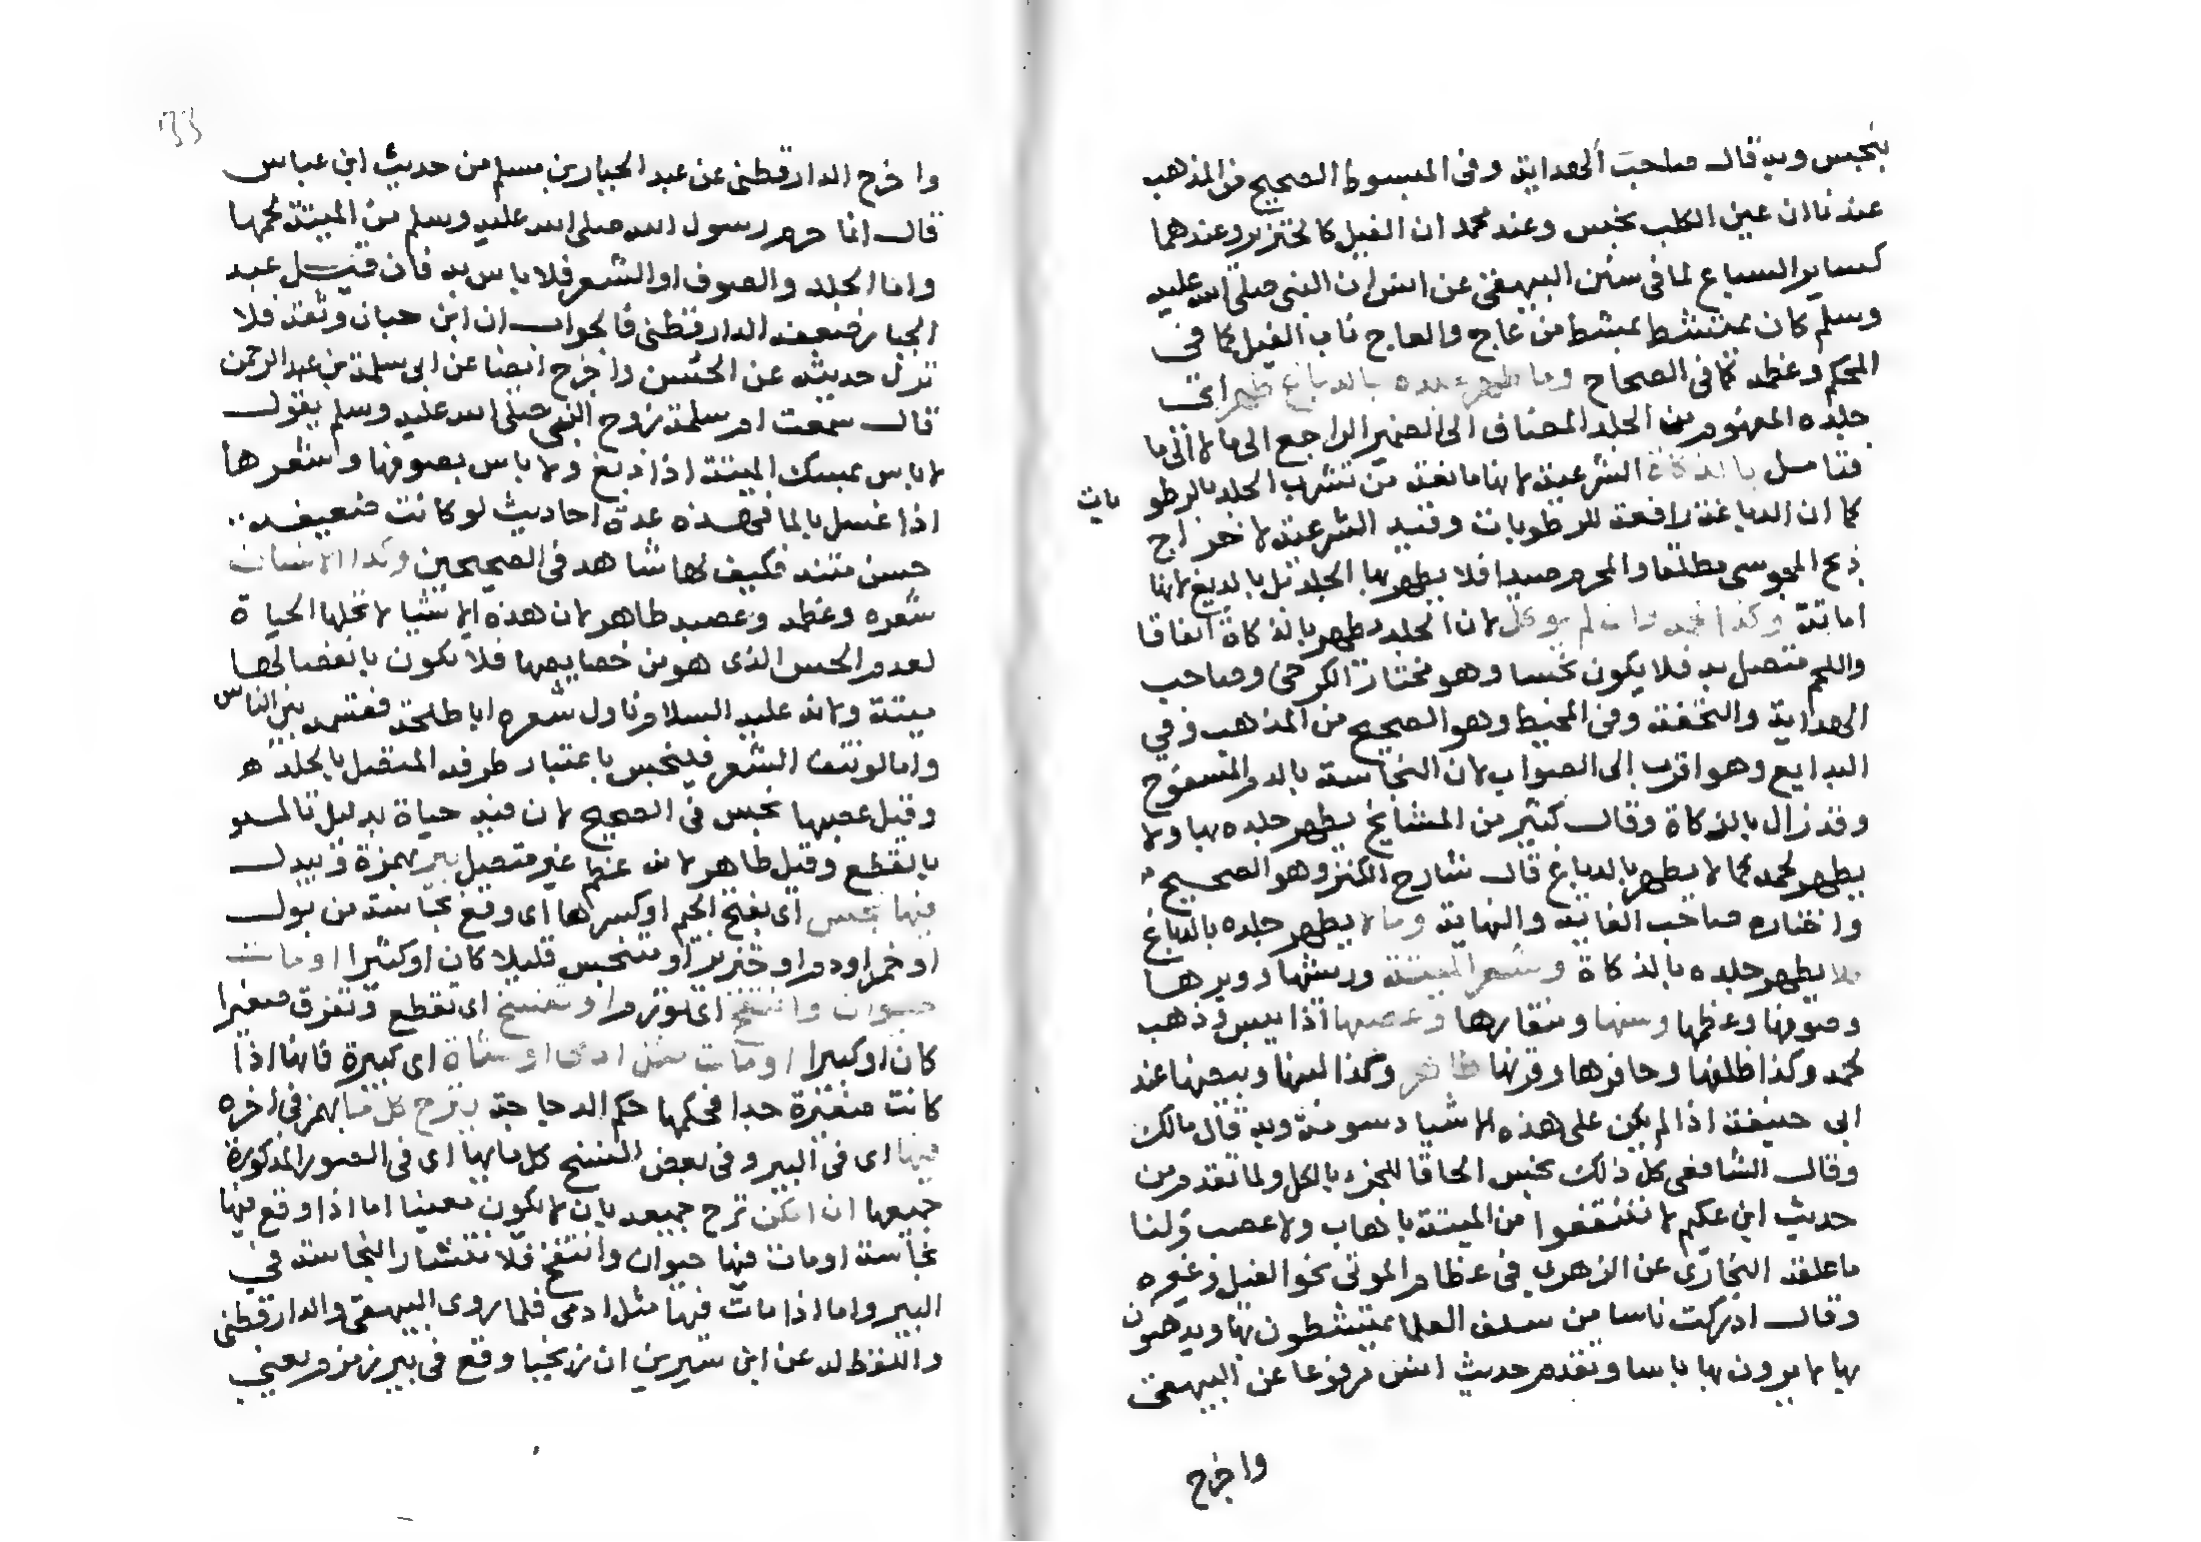 بنجس وبه قال صاحب الهداية وفى المبسوط الصحيح من المذهب
عندنا ان عين الكلب نجس وعند محمد ان الفيل كالخنزير وعندهما
كساير السباع لما فى سنن البيهقي عن انس ان النبي صلى الله عليه
وسلم كان يمتشط بمشط من عاج والعاج ناب الفيل كما فى
المحكم وعظمه كما فى الصحاح وما طهر جلده بالدباغ طهر اى
جلده المفهوم من الجلد المضاف الى الضمير الراجع الى ما لا الى ما
فتامل بالذكاة الشرعية لانها مانعة من تشرب الجلد بالرطو بات
كما ان الدباغة رافعة للرطوبات وقيد الشرعية لاخراج
ذبح المجوسى مطلقا والمحرم صيدا فلا يطهر بها الجلد بل بالدبغ لانها
اماتة وكذا لحمه وان لم يوكل لان الجلد يطهر بالذكاة اتفاقا
واللحم متصل به فلا يكون نجسا وهو مختار الكرخى وصاحب
الهداية والتحفة وفى المحيط وهو الصحيح من المذهب وفي
البدايع وهو اقرب الى الصواب لان النجاسة بالدم المسفوح
وقد زال بالذكاة وقال كثير من المشايخ يطهر جلده بها ولا
يطهر لحمه كما لا يطهر بالدباغ قال شارح الكنز وهو الصحيح
واختاره صاحب الغاية والنهاية وما لا يطهر جلده بالدباغ
فلا يطهر جلده بالذكاة وشعر الميتة وريشها ووبرها
وصوفها وعظمها وسنها ومنقارها وعصبها اذا يبس وذهب
لحمه وكذا ظلفها وحافرها وقرنها طاهر وكذا لبنها وبيضها عند
ابى حنيفة اذا لم يكن على هذه الاشيا دسومة وبه قال مالك
وقال الشافعى كل ذلك نجس الحاقا للجزء بالكل ولما تقدم من
حديث ابن عكيم لا تنتفعوا من الميتة باهاب ولا عصب ولنا
ما علقه البخارى عن الزهرى فى عظام الموتى نحو الفيل وغيره
وقال ادركت ناسا من سلف العلما يمتشطون بها ويدهنون
بها لا يرون بها باسا وتقدم حديث انس مرفوعا عن البيهقى
واخرج
واخرج الدارقطنى عن عبد الجبار بن مسلم من حديث ابن عباس
قال انما حرم رسول الله صلى الله عليه وسلم من الميتة لحمها
واما الجلد والصوف او الشعر فلا باس به فان قيل عبد
الجبار ضعفه الدارقطنى فالجواب ان ابن حبان وثقه فلا
نزل حديثه عن الحسن واخرج ايضا عن ابى سلمة بن عبد الرحمن
قال سمعت ام سلمة زوج النبي صلى الله عليه وسلم يقول
لا باس بمسك الميتة اذا دبغ ولا باس بصوفها واشعرها
اذا غسل بالما فهذه عدة احاديث لو كانت ضعيفه
حسن متنه فكيف لها شاهد فى الصحيحين وكذا الانسان
شعره وعظمه وعصبه طاهر لان هذه الاشيا لا تحلها الحياة
لعدم الحس الذى هو من خصايصها فلا يكون بانفصالها
ميتة ولانه عليه السلام ناول شعره ابا طلحة فقسمه بين الناس
واما لو نتف الشعر فينجس باعتبار طرفه المتصل بالجلد
وقيل عصبها نجس فى الصحيح لان فيه حياة بدليل تالمه
بالقطع وقيل طاهر لانه عظم غير متصل بير بهمزة وتبدل
فيها نجس اى بفتح الجيم او كسرها اى وقع نجاسة من بول
او خمر او دم او خنزير او متنجس قليلا كان او كثيرا او مات
حيوان وانتفخ اى تورم او تفسخ اى تقطع وتفرق صغيرا
كان او كبيرا او مات مثل ادمى او شاة اى كبيرة فانها اذا
كانت صغيرة جدا فحكمها حكم الدجاجة ينزح كل مابهمز فى اخره
فيها اى فى البير وفى بعض النسخ كل مابها اى فى الصور المذكورة
جميعها ان امكن نزح جميعه بان لا يكون معينا اما اذا وقع فيها
نجاسة او مات فيها حيوان وانتفخ فلانتشار النجاسة في
البير واما اذا مات فيها مثل ادمى فلما روى البيهقى والدارقطنى
واللفظ له عن ابن سيرين ان زنجيا وقع فى بير زمزم يعني